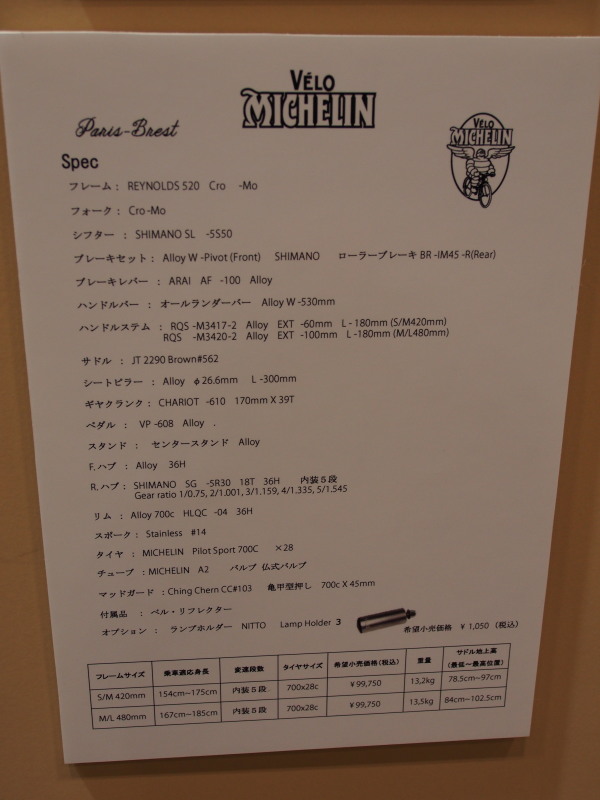 VÉLO
MICHELIN
Paris-Brest
VÉLO
MICHELIN
Spec
フレーム： REYNOLDS 520 Cro -Mo
フォーク： Cro-Mo
シフター ： SHIMANO SL -5S50
ブレーキセット： Alloy W -Pivot (Front) SHIMANO ローラーブレーキ BR -IM45 -R(Rear)
ブレーキレバー ： ARAI AF -100 Alloy
ハンドルバー ： オールランダーバー Alloy W -530mm
ハンドルステム ： RQS -M3417-2 Alloy EXT -60mm L - 180mm (S/M420mm)
RQS -M3420-2 Alloy EXT -100mm L -180mm (M/L480mm)
サドル ： JT 2290 Brown#562
シートピラー ： Alloy φ26.6mm L -300mm
ギヤクランク： CHARIOT -610 170mm X 39T
ペダル ： VP -608 Alloy .
スタンド ： センタースタンド Alloy
F. ハブ ： Alloy 36H
R. ハブ： SHIMANO SG -5R30 18T 36H 内装５段
Gear ratio 1/0.75, 2/1.001, 3/1.159, 4/1.335, 5/1.545
リム ： Alloy 700c HLQC -04 36H
スポーク： Stainless #14
タイヤ ： MICHELIN Pilot Sport 700C ×28
チューブ：MICHELIN A2 バルブ 仏式バルブ
マッドガード ：Ching Chern CC#103 亀甲型押し 700c X 45mm
付属品 ： ベル・リフレクター
オプション ： ランプホルダー NITTO Lamp Holder 3 希望小売価格 ￥1,050（税込）
フレームサイズ 乗車適応身長 変速段数 タイヤサイズ 希望小売価格(税込) 重量 サドル地上高（最低〜最高位置）
S/M 420mm 154cm~175cm 内装５段 700x28c ￥99,750 13,2kg 78.5cm~97cm
M/L 480mm 167cm~185cm 内装５段 700x28c ￥99,750 13,5kg 84cm~102.5cm